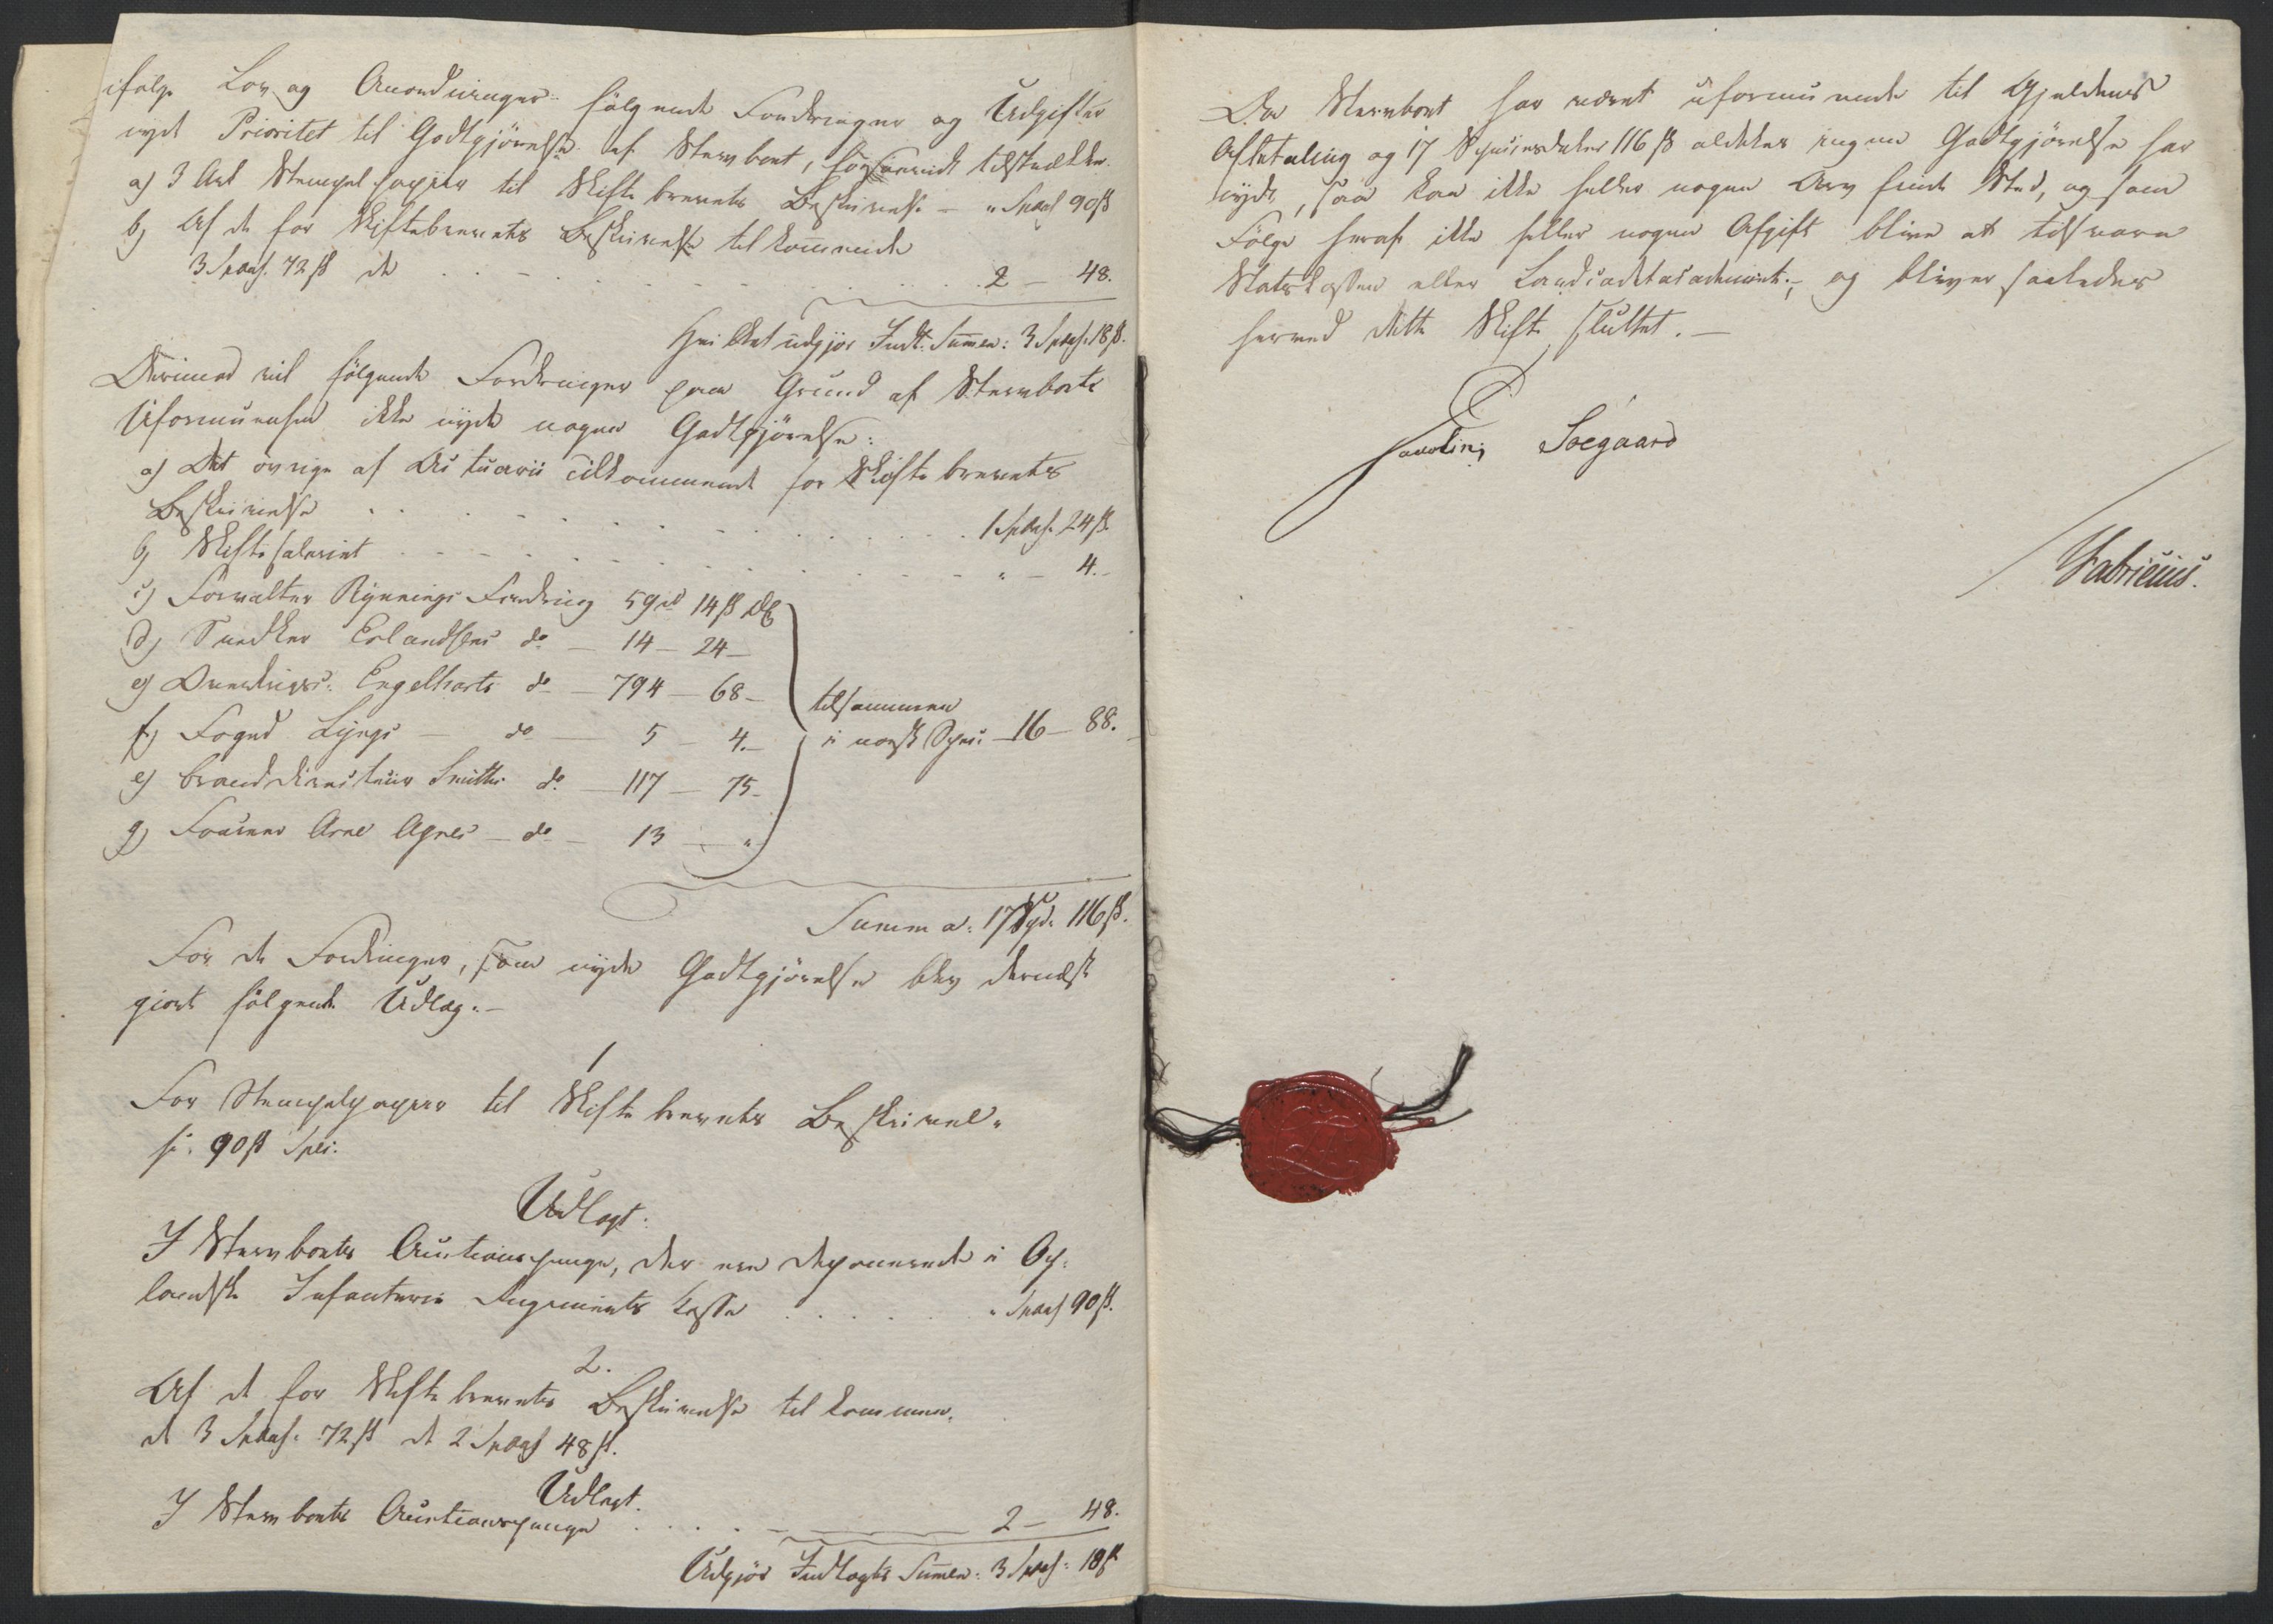 ifølge Lov og Anordninger følgende Fordringer og Udgifter
nyde Prioritet til Godtgjørelse af Stervboet, forsaavidt tilstrækker
a) 3 Ark Stempelpapiir til Skiftebrevets Beskrivelse — " Spd 90 ß
b) Af de for Skiftebrevets Beskrivelse tilkommende
3 Spd. 72 ß de . . . 2 — 48.
Hvilket udgjør Indt. Summen: 3 Spd. 18 ß.
Derimod vil følgende Fordringer paa Grund af Stervboets
Uformuenhed ikke nyde nogen Godtgjørelse:
a) Det øvrige af Actuarii Tilkommende for Skiftebrevets
Beskrivelse . . . 1 Spd. 24 ß.
b) Skiftesalariet . . . " — 4.
c) Forvalter Rynnings Fordring 59 rd 14 ß
d) Snedker Erlandsens do — 14 — 24 —
e) Engelharts do — 794 — 68 —
f) Foged Lyngs — do — 5 — 4. —
e) Branddirecteur Smiths do. — 117 — 75 —
g) Arne Agnes — do — 13 — "
tilsammen
i norsk Speci — 16 — 88.
Summa: 17 Spd. 116 ß.
For de Fordringer, som nyde Godtgjørelse blev dernæst
giort følgende Udlæg. —
1
For Stempelpapiir til Skiftebrevets Beskrivel-
se: 90 ß Spec:
Udlagt:
I Stervboets Auctionspenge, der ere deponerede i Op-
landske Infanterie Regiments Casse . . . " Spd 90 ß.
2.
Af de for Skiftebrevets Beskrivelse tilkommen-
de 3 Spd. 72 ß de 2 Spd 48 ß.
Udlagt.
I Stervboets Auctionspenge . . . 2 — 48.
Udgjør Indlagte Summen: 3 Spd: 18 ß
Da Stervboet har været uformuende til Gjældens
Afbetaling og 17 Speciesdaler 116 ß aldeles ingen Godtgjørelse har
nydt, saa kan ikke heller nogen Arv finde Sted, og som
Følge heraf ikke heller nogen Afgift blive at tilsvare
Statskassen eller Landcadetacademiet; og bliver saaledes
hermed dette Skifte sluttet. —
Soegaard
Fabricius.